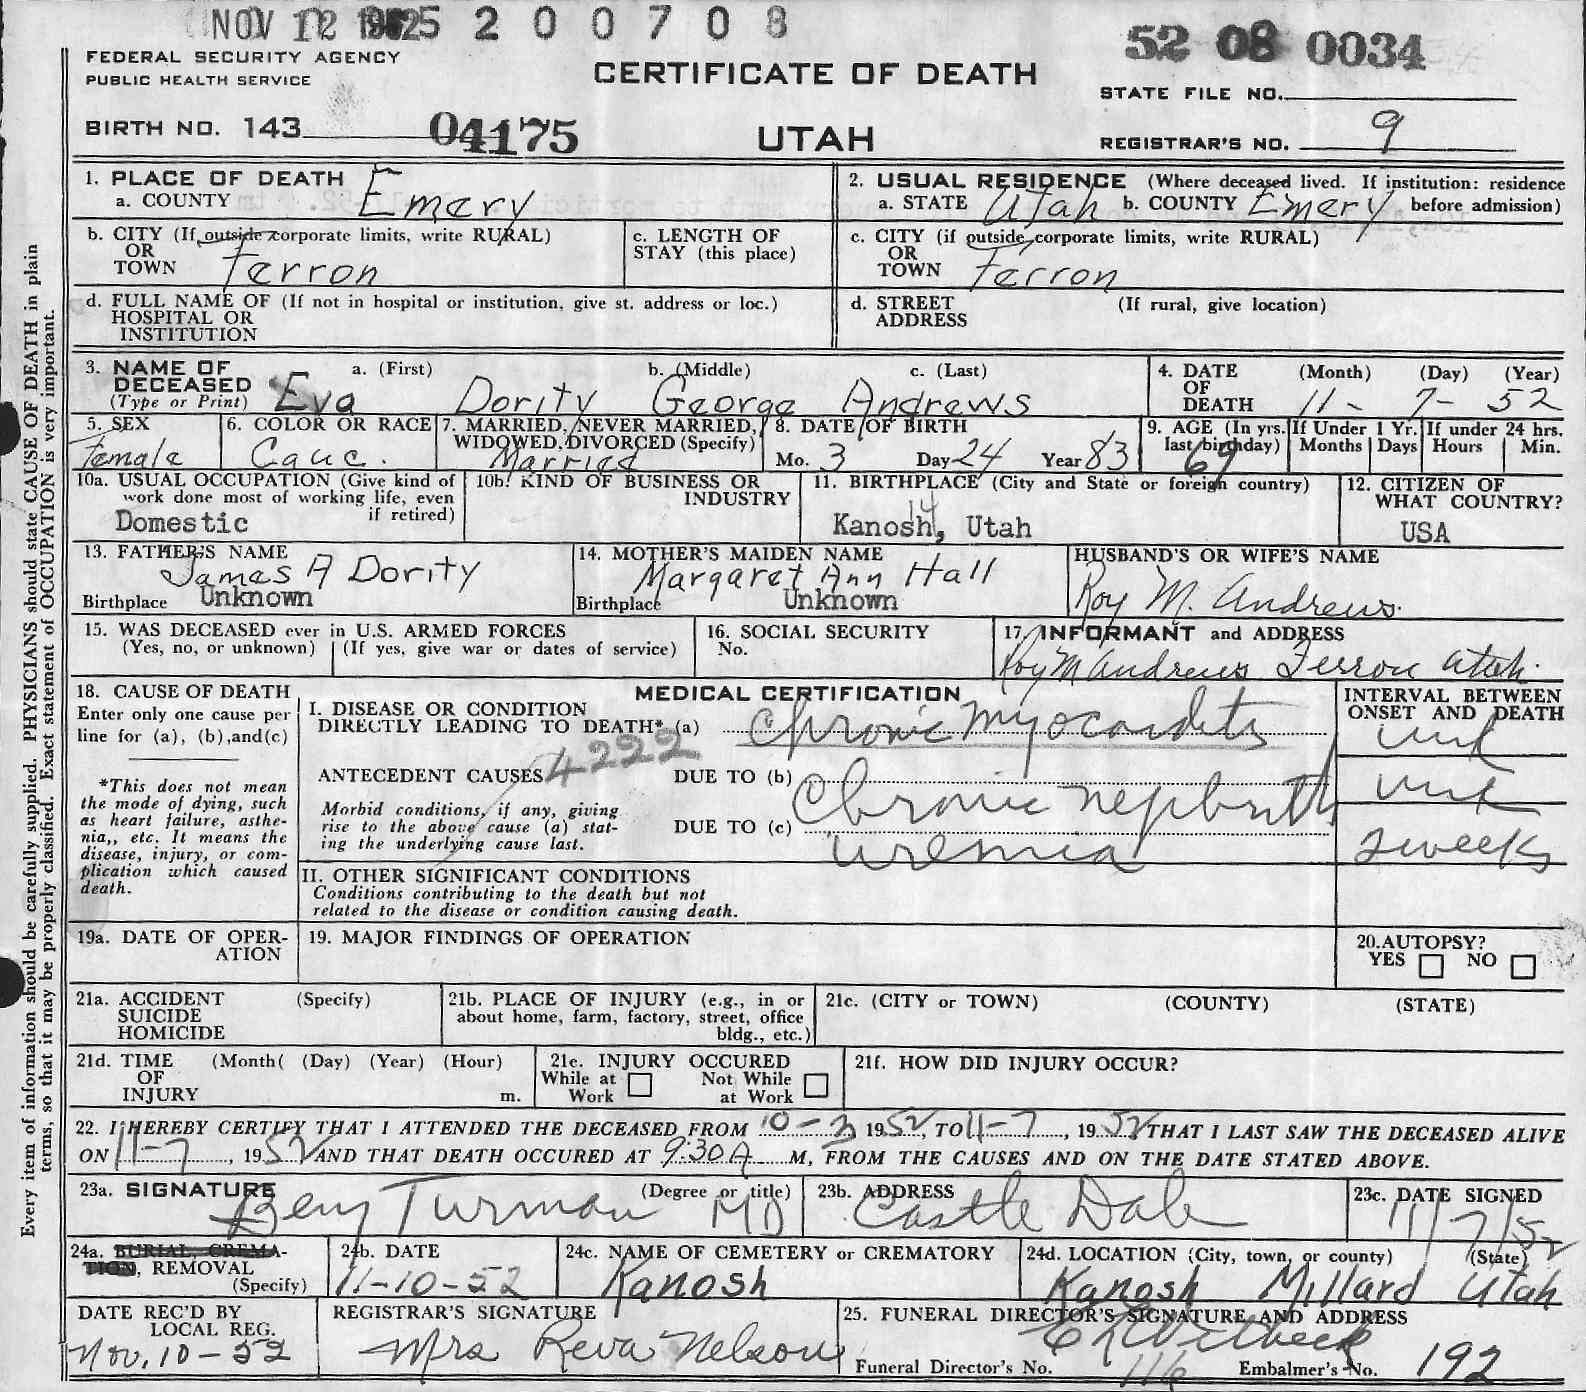 NOV 12 1952 5 2 0 0 7 0 8
52 08 0034
FEDERAL SECURITY AGENCY
PUBLIC HEALTH SERVICE
CERTIFICATE OF DEATH
STATE FILE NO.
BIRTH NO. 143 04175
UTAH
REGISTRAR'S NO. 9
Every item of information should be carefully supplied. PHYSICIANS should state CAUSE OF DEATH in plain
terms, so that it may be properly classified. Exact statement of OCCUPATION is very important.
1. PLACE OF DEATH
a. COUNTY Emery
2. USUAL RESIDENCE (Where deceased lived. If institution: residence
a. STATE Utah b. COUNTY Emery before admission)
b. CITY (If outside corporate limits, write RURAL)
OR
TOWN Ferron
c. LENGTH OF
STAY (this place)
c. CITY (if outside corporate limits, write RURAL)
OR
TOWN Ferron
d. FULL NAME OF (If not in hospital or institution, give st. address or loc.)
HOSPITAL OR
INSTITUTION
d. STREET (If rural, give location)
ADDRESS
3. NAME OF a. (First) b. (Middle) c. (Last)
DECEASED
(Type or Print) Eva Dority George Andrews
4. DATE (Month) (Day) (Year)
OF
DEATH 11- 7- 52
5. SEX
Female
6. COLOR OR RACE
Cauc.
7. MARRIED, NEVER MARRIED,
WIDOWED, DIVORCED (Specify)
Married
8. DATE OF BIRTH
Mo. 3 Day 24 Year 83
9. AGE (In yrs.
last birthday)
69
If Under 1 Yr.
Months Days
If under 24 hrs.
Hours Min.
10a. USUAL OCCUPATION (Give kind of
work done most of working life, even
if retired)
Domestic
10b. KIND OF BUSINESS OR
INDUSTRY
11. BIRTHPLACE (City and State or foreign country)
14
Kanosh, Utah
12. CITIZEN OF
WHAT COUNTRY?
USA
13. FATHER'S NAME
James A Dority
Birthplace Unknown
14. MOTHER'S MAIDEN NAME
Margaret Ann Hall
Birthplace Unknown
HUSBAND'S OR WIFE'S NAME
Roy M. Andrews.
15. WAS DECEASED ever in U.S. ARMED FORCES
(Yes, no, or unknown) (If yes, give war or dates of service)
16. SOCIAL SECURITY
No.
17. INFORMANT and ADDRESS
Roy M Andrews Ferron Utah.
18. CAUSE OF DEATH
Enter only one cause per
line for (a), (b),and(c)
*This does not mean
the mode of dying, such
as heart failure, asthe-
nia,, etc. It means the
disease, injury, or com-
plication which caused
death.
MEDICAL CERTIFICATION
I. DISEASE OR CONDITION
DIRECTLY LEADING TO DEATH* (a) Chronic myocardits
4222
ANTECEDENT CAUSES DUE TO (b) Chronic
Morbid conditions, if any, giving
rise to the above cause (a) stat-
ing the underlying cause last.
DUE TO (c) uremia
INTERVAL BETWEEN
ONSET AND DEATH
unk
unk
2 weeks
II. OTHER SIGNIFICANT CONDITIONS
Conditions contributing to the death but not
related to the disease or condition causing death.
19a. DATE OF OPER-
ATION
19. MAJOR FINDINGS OF OPERATION
20.AUTOPSY?
YES NO
21a. ACCIDENT (Specify)
SUICIDE
HOMICIDE
21b. PLACE OF INJURY (e.g., in or
about home, farm, factory, street, office
bldg., etc.)
21c. (CITY or TOWN) (COUNTY) (STATE)
21d. TIME (Month( (Day) (Year) (Hour)
OF
INJURY m.
21e. INJURY OCCURED
While at Not While
Work at Work
21f. HOW DID INJURY OCCUR?
22. I HEREBY CERTIFY THAT I ATTENDED THE DECEASED FROM 10-3 1952, TO 11-7, 1952 THAT I LAST SAW THE DECEASED ALIVE
ON 11-7, 1952 AND THAT DEATH OCCURED AT 9:30A M, FROM THE CAUSES AND ON THE DATE STATED ABOVE.
23a. SIGNATURE (Degree or title)
Turman MD
23b. ADDRESS
Castle Dale
23c. DATE SIGNED
11/7/52
24a. BURIAL, CREMA-
TION, REMOVAL
(Specify)
24b. DATE
11-10-52
24c. NAME OF CEMETERY or CREMATORY
Kanosh
24d. LOCATION (City, town, or county) (State)
Kanosh Millard Utah
DATE REC'D BY
LOCAL REG.
Nov. 10-52
REGISTRAR'S SIGNATURE
Mrs Reva Nelson
25. FUNERAL DIRECTOR'S SIGNATURE AND ADDRESS
Funeral Director's No. 116 Embalmer's No. 192